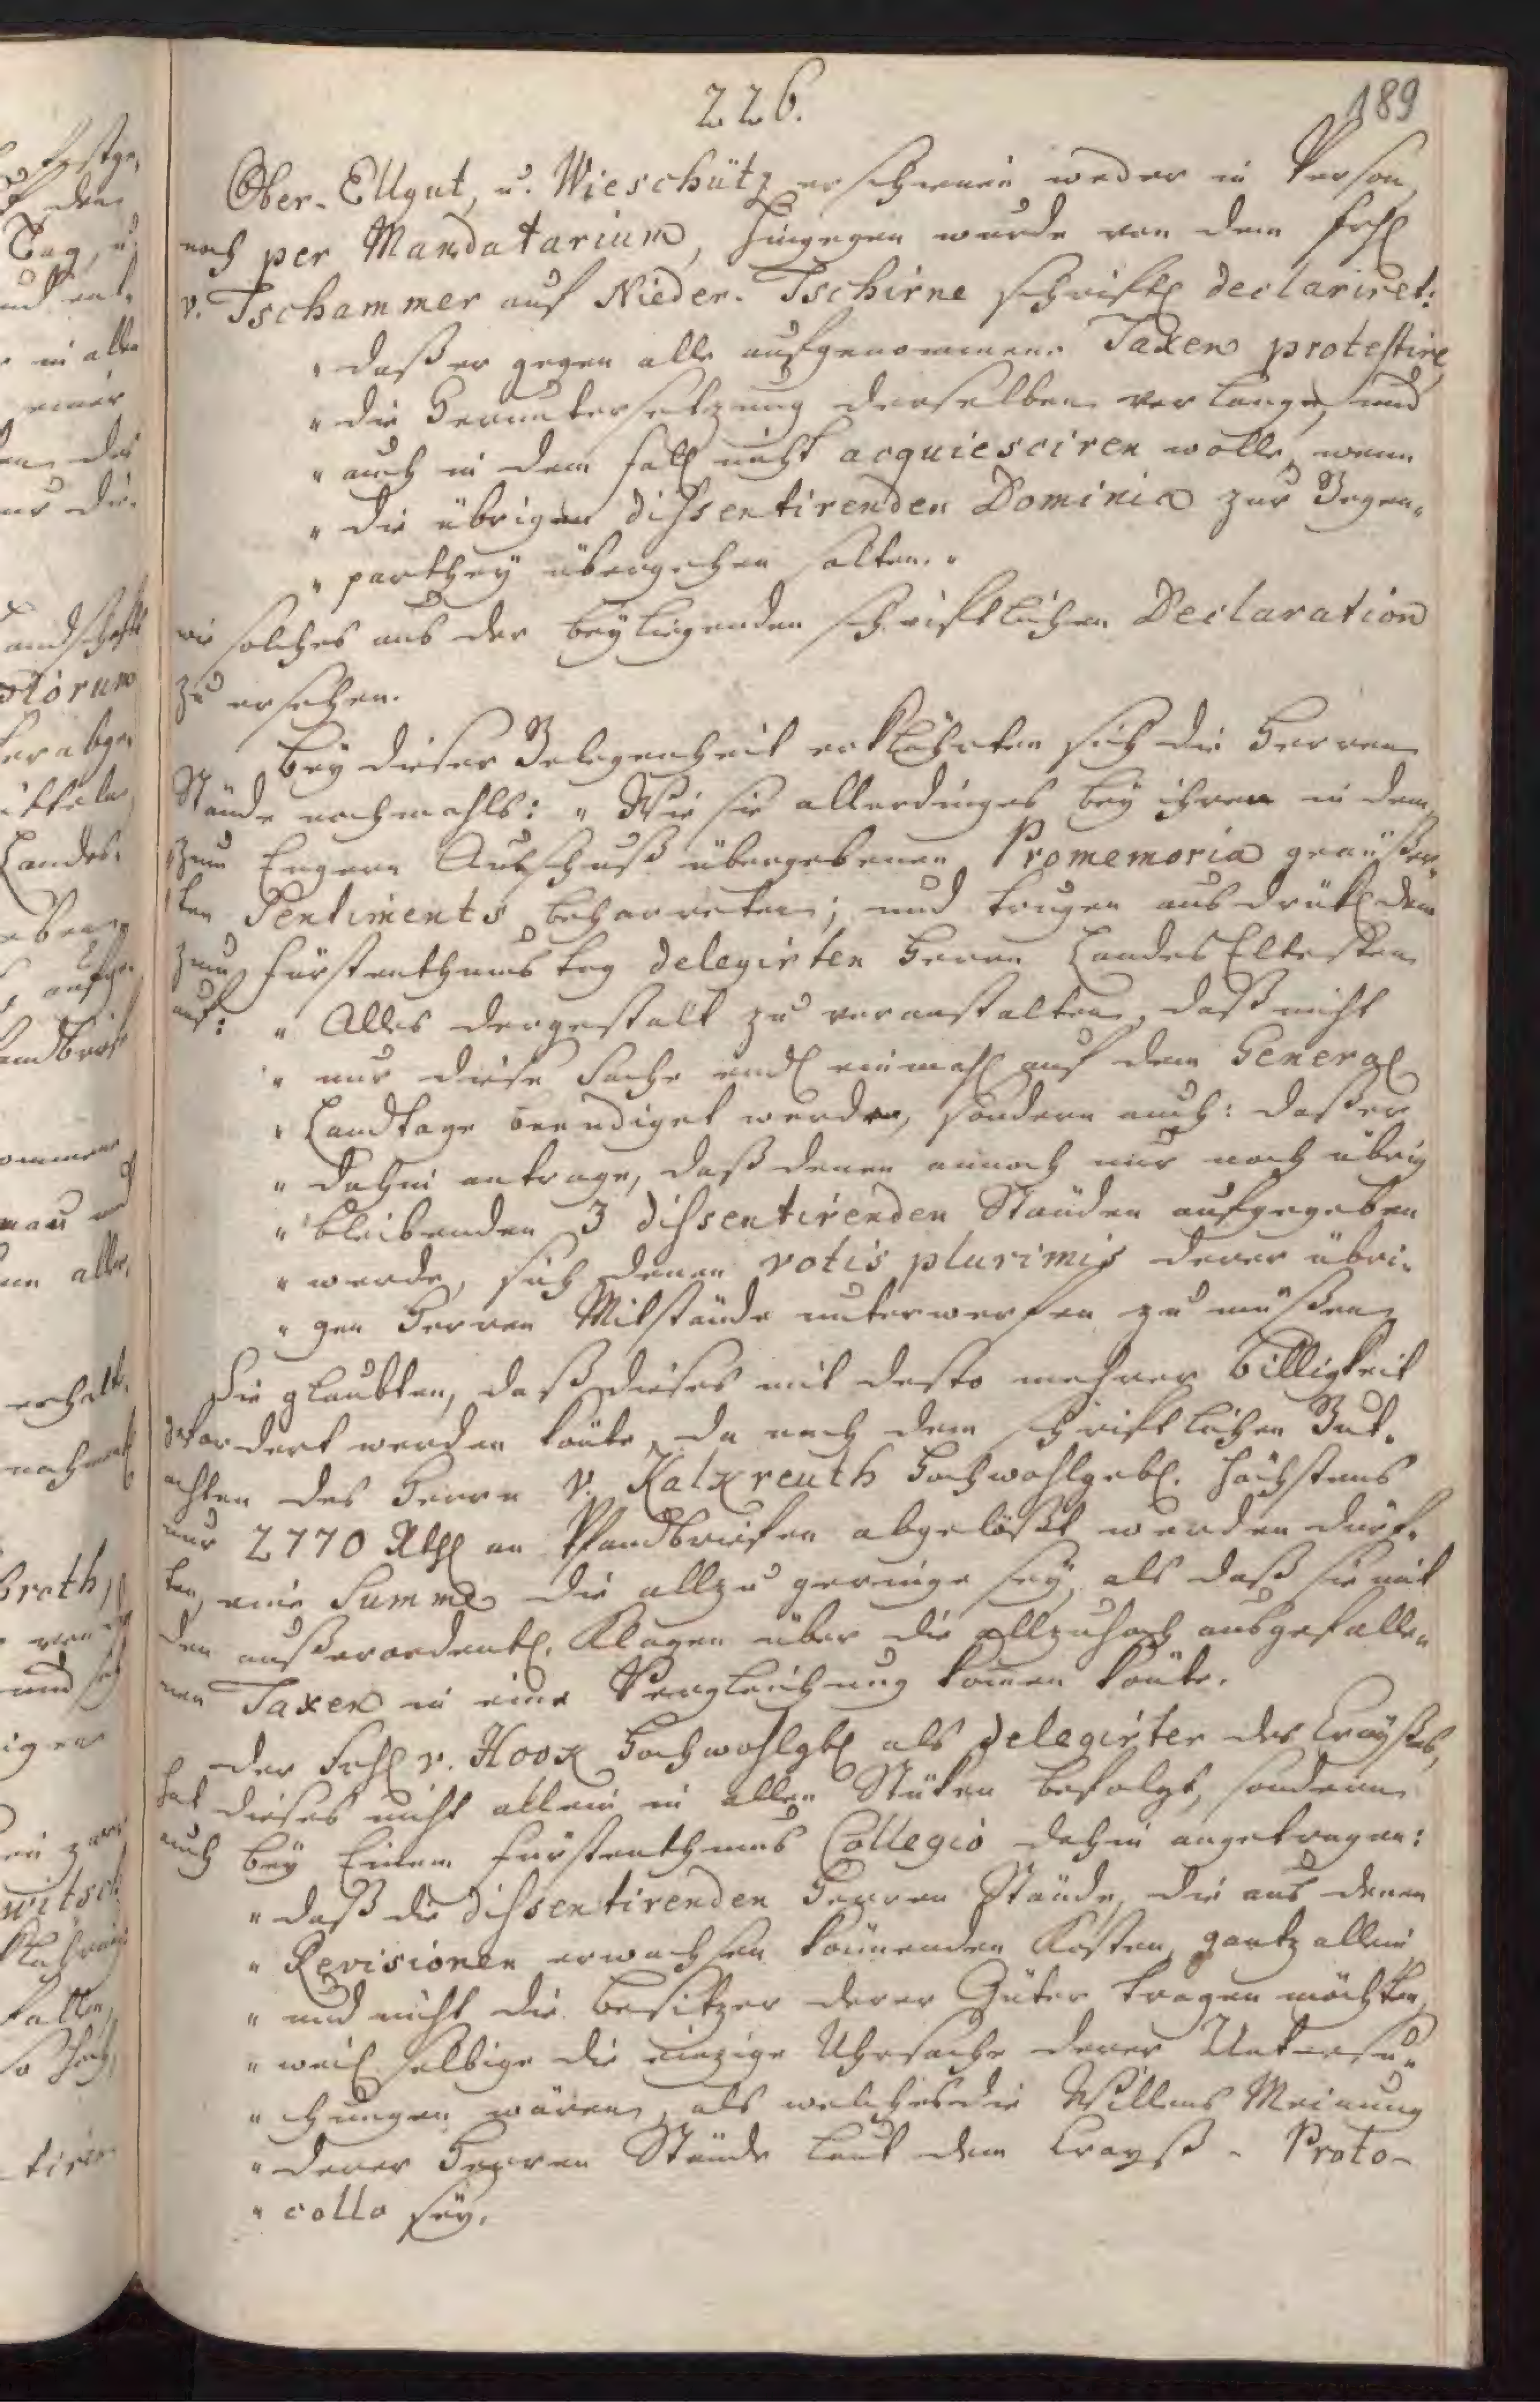 226.
189
Ober-Ellgut, u. Wieschütz erschienen weder in Person,
noch per Mandatarium, hingegen wurde von dem Frh
v. Tschammer auf Nieder-Tschirne schriftl declariret:
" daß er gegen alle aufgenommene Taxen protestire,
" die Heruntersetzung derselben verlange, und
" auch in dem Fall nicht acquiesciren wolle, wenn
" die übrigen dissentirenden Dominia zur Gegen-
" parthey übergehen solten. "
wie solches aus der beyliegenden schriftlichen Declaration
zu ersehen.
Bey dieser Gelegenheit erklährten sich die Herren
Stände nochmahls: " Wie sie allerdinges bey ihren in dem,
zum Engern Ausschuß übergebenen Promemoria geäußer-
ten Sentiments beharreten; und trugen ausdrükl dem
zum Fürstenthums tag delegirten Herrn Landes Eltesten
auf: " Alles dergestalt zu veranstalten, daß nicht
" nur diese Sache endl einmahl auf dem General
" Landtage beendiget werden, sondern auch: daß er
" dahin antrage, daß denen annoch nur noch übrig
" bleibenden 3 dissentirenden Ständen aufgegeben
" werde, sich denen votis plurimis derer übri-
" gen Herren Mitstände unterwerfen zu müßen,
Sie glaubten, daß dieses mit desto mehrer Billigkeit
gefordert werden könte, da nach dem schriftlichen Gut-
achten des Herrn v. Kalkreuth Hochwohlgebl. höchstens
nur 2770 Rthl an Pfandbriefen abgelößt werden dürf-
ten, eine Summe die allzu geringe sey, als daß sie mit
den außerordentl. Klagen über die allzuhoch ausgefalle-
nen Taxen in eine Vergleichung komen könte.
Der Frh v. Hock Hochwohlgbl als Delegirter des Crayßes,
hat dieses nicht allein in allen Stüken befolgt, sondern
auch bey Einem Fürstenthums Collegio dahin angetragen:
" daß die dissentirenden Herren Stände, die aus denen
" Revisionen erwachsen könnenden Kosten, gantz allein
" und nicht die Besitzer derer Güter tragen möchten,
" weil selbige die einzige Uhrsache derer Untersu-
" chungen wären, als welches die Willens Meinung
" derer Herren Stände laut dem Crayß-Proto-
" collo sey.